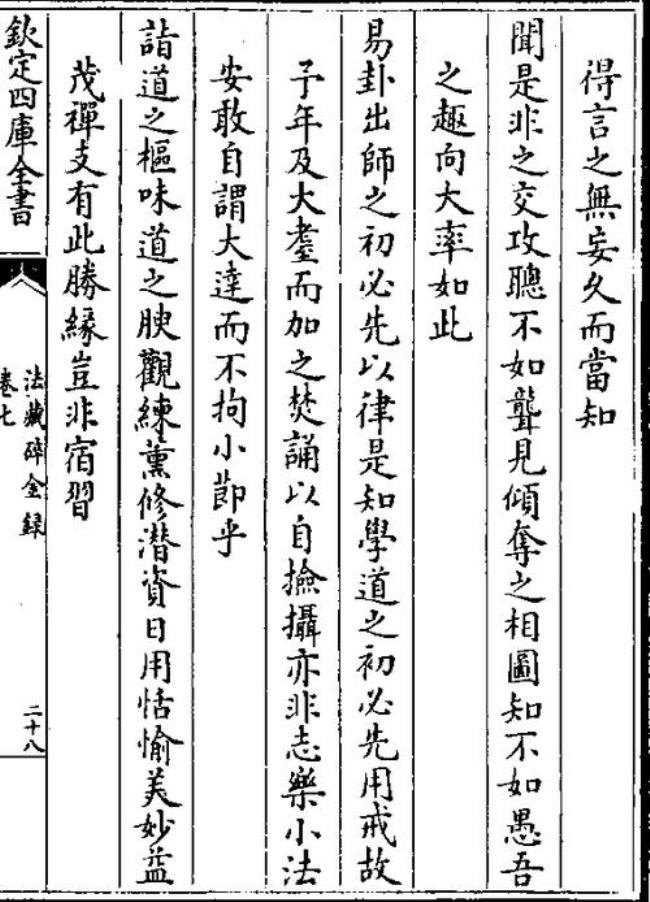 得言之無妄久而當知
聞是非之交攻聰不如聾見傾奪之相圖知不如愚吾
之趣向大率如此
易卦出師之初必先以律是知學道之初必先用戒故
予年及大耋而加之焚誦以自撿攝亦非志樂小法
安敢自謂大達而不拘小節乎
詣道之樞味道之腴觀練薰修潜資日用恬愉美妙益
茂禪支有此勝緣豈非宿習
欽定四庫全書
法藏碎金録
卷七
二十八